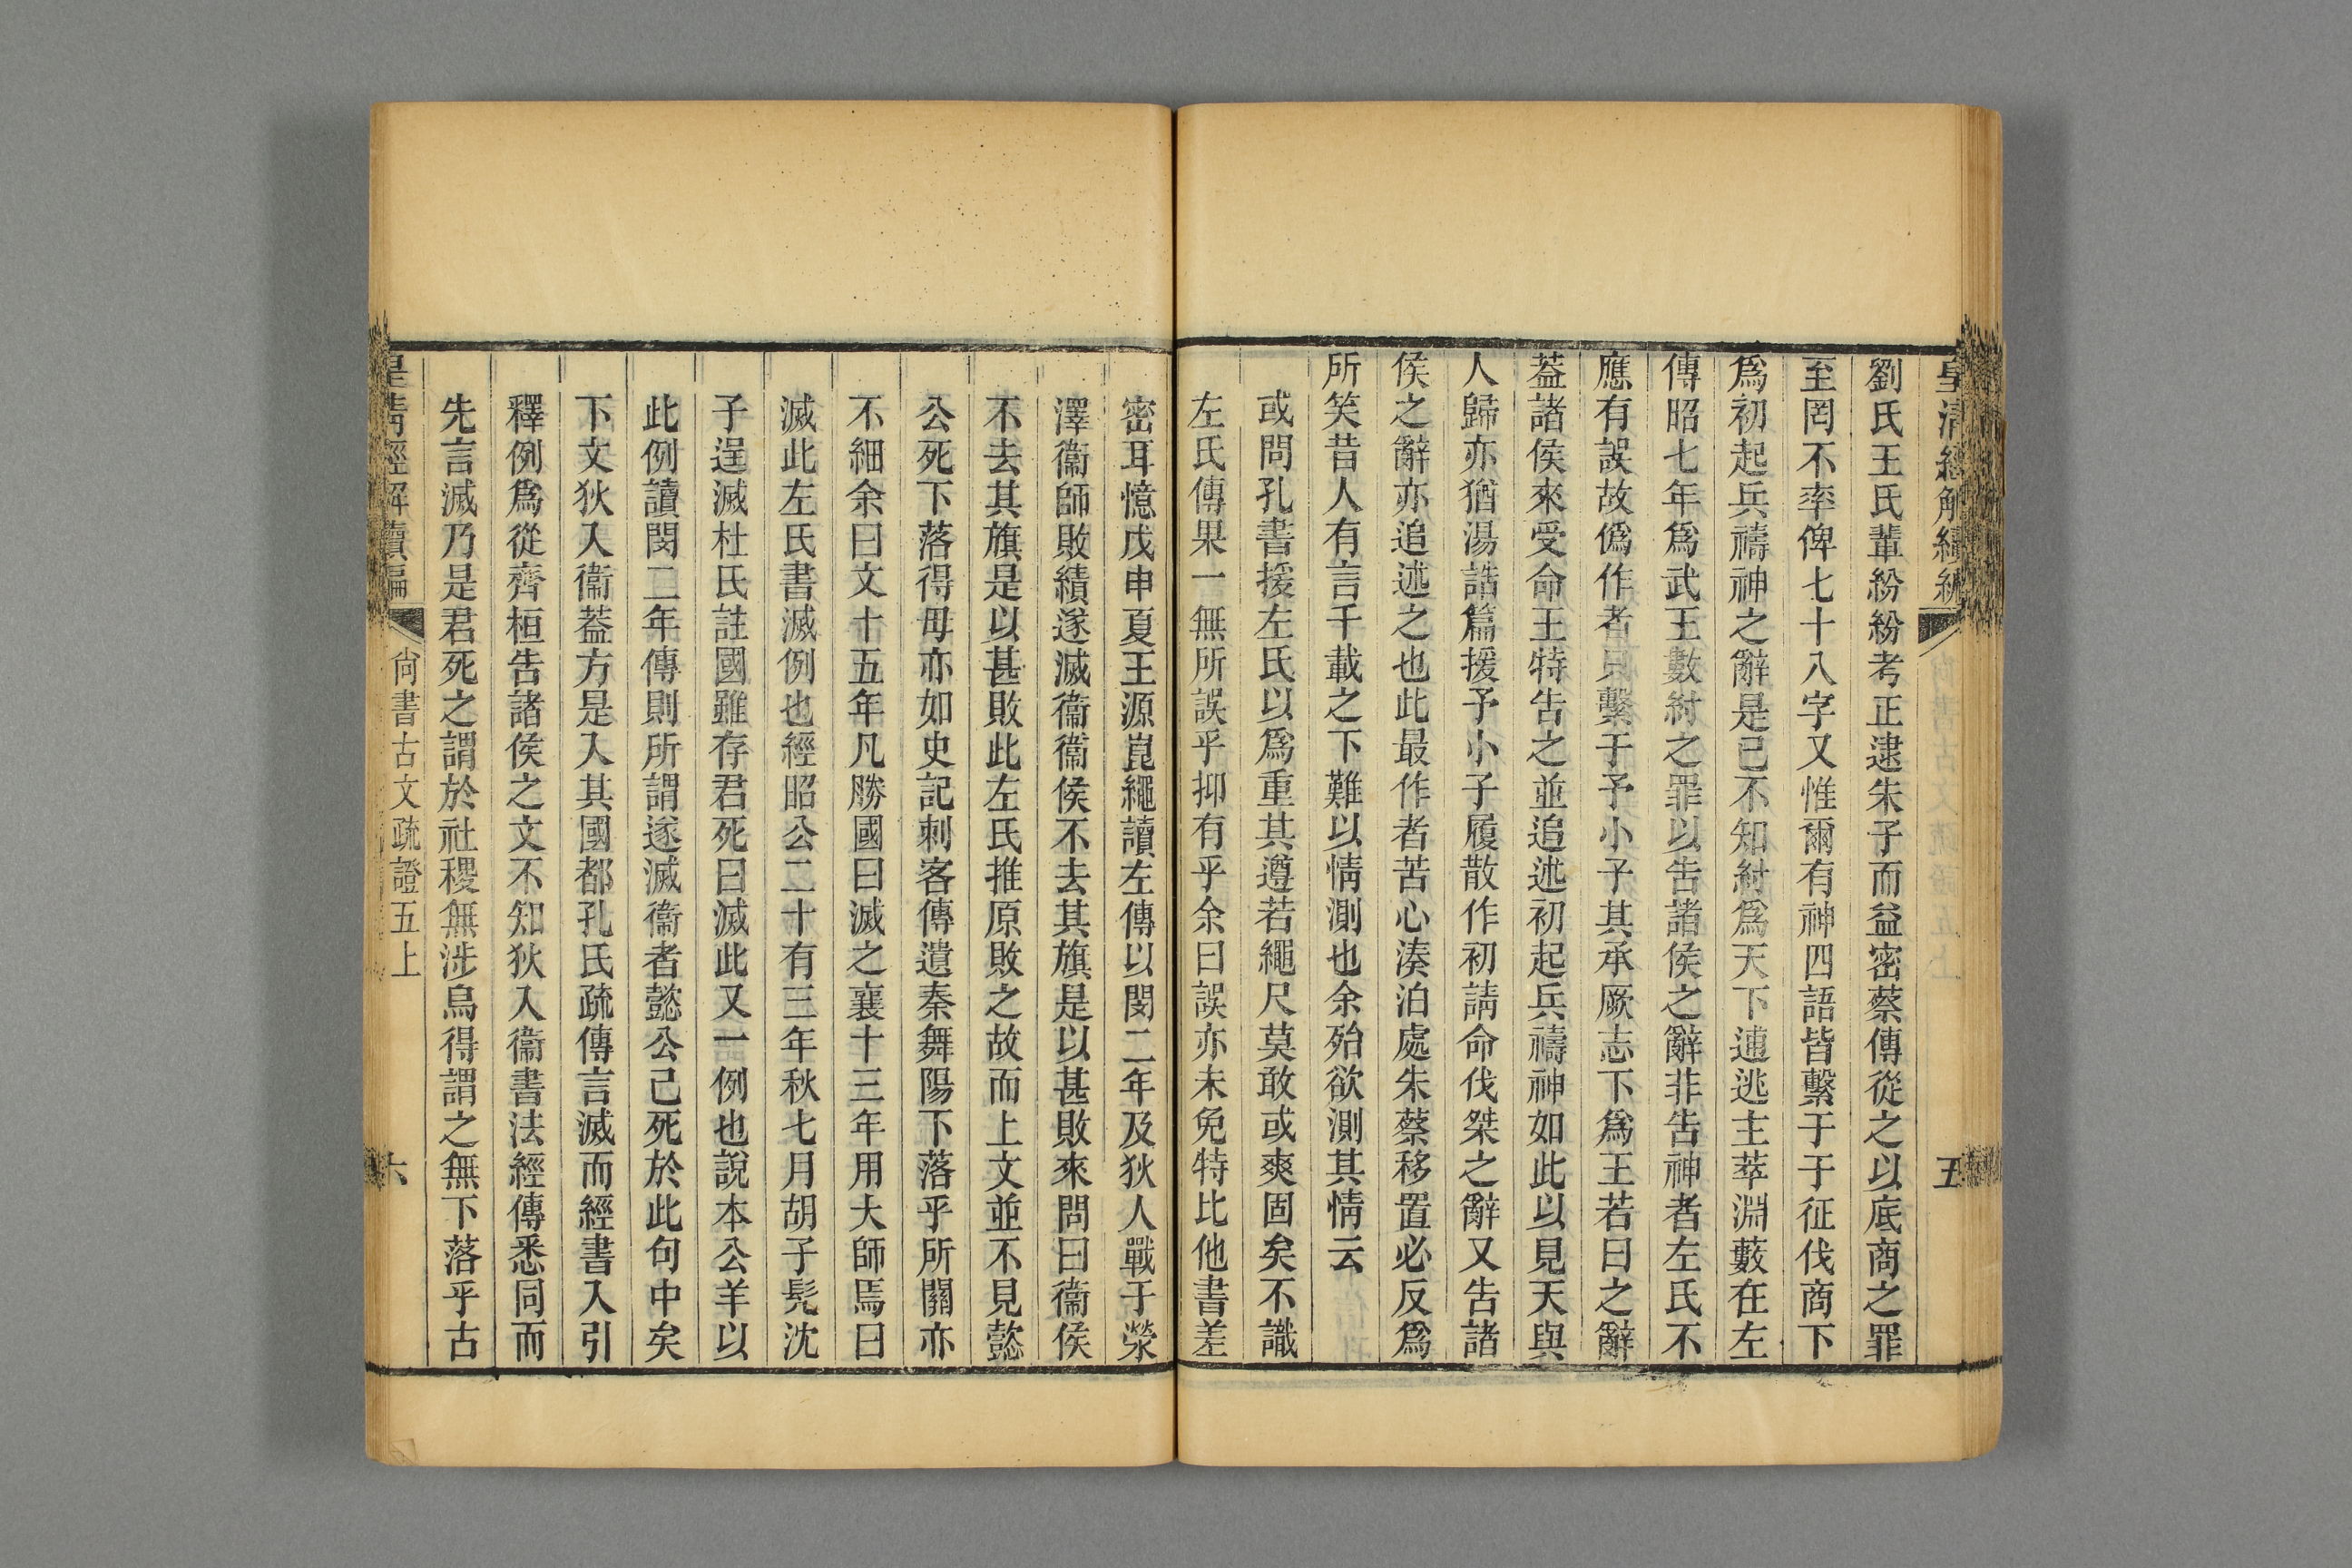 皇清經解續編
五
劉氏王氏輩紛紛考正逮朱子而益密蔡傳從之以底商之罪
至罔不率俾七十八字又惟爾有神四語皆繫于于征伐商下
爲初起兵禱神之辭是已不知紂爲天下逋逃主萃淵藪在左
傳昭七年爲武王數紂之罪以告諸侯之辭非告神者左氏不
應有誤故僞作者只繫于予小子其承厥志下爲王若曰之辭
葢諸侯來受命王特告之並追述初起兵禱神如此以見天與
人歸亦猶湯誥篇援予小子履散作初請命伐桀之辭又告諸
侯之辭亦追述之也此最作者苦心湊泊處朱蔡移置必反爲
所笑昔人有言千載之下難以情測也余殆欲測其情云
或問孔書援左氏以爲重其遵若繩尺莫敢或爽固矣不識
左氏傳果一無所誤乎抑有乎余曰誤亦未免特比他書差
密耳憶戊申夏王源崑繩讀左傳以閔二年及狄人戰于滎
澤衞師敗績遂滅衞衞侯不去其旗是以甚敗來問曰衞侯
不去其旗是以甚敗此左氏推原敗之故而上文並不見懿
公死下落得毋亦如史記刺客傳遺秦舞陽下落乎所關亦
不細余曰文十五年凡勝國曰滅之襄十三年用大師焉曰
滅此左氏書滅例也經昭公二十有三年秋七月胡子髡沈
子逞滅杜氏註國雖存君死曰滅此又一例也說本公羊以
此例讀閔二年傳則所謂遂滅衞者懿公已死於此句中矣
下文狄入衞葢方是入其國都孔氏疏傳言滅而經書入引
釋例爲從齊桓告諸侯之文不知狄入衞書法經傳悉同而
先言滅乃是君死之謂於社稷無涉烏得謂之無下落乎古
皇清經解續編
尙書古文疏證五上
六